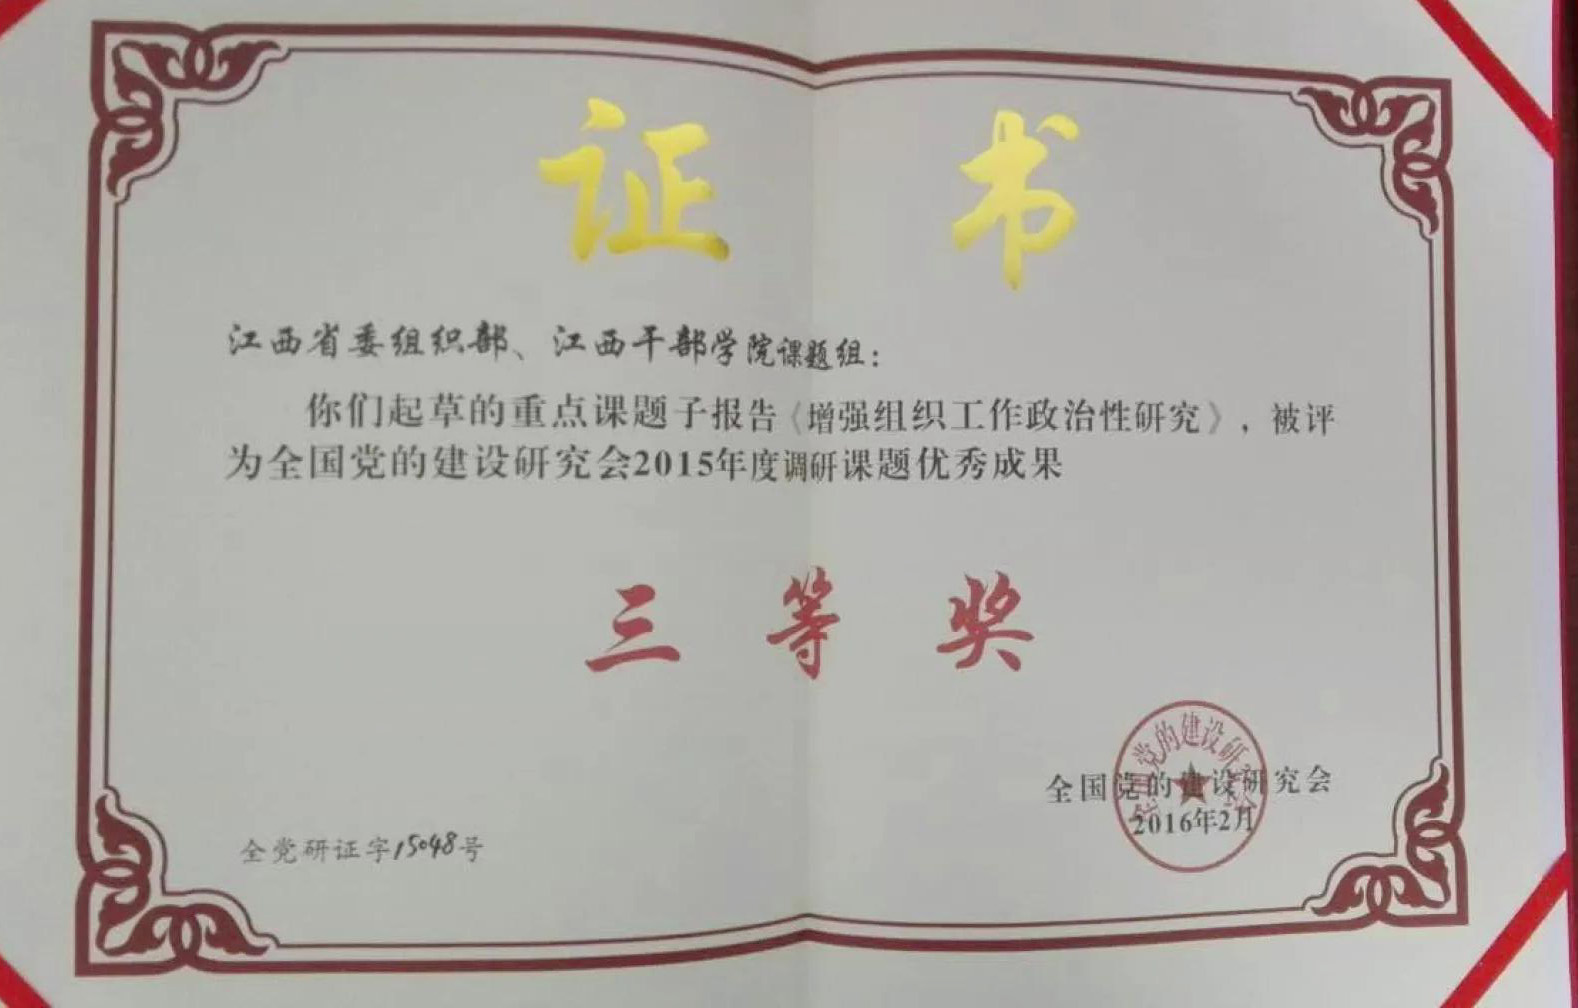 证 书
江西省委组织部、江西干部学院课题组：
你们起草的重点课题子报告《增强组织工作政治性研究》，被评
为全国党的建设研究会2015年度调研课题优秀成果
三 等 奖
全国党的建设研究会
全国党的建设研究会
2016年2月
全党研证字15048号